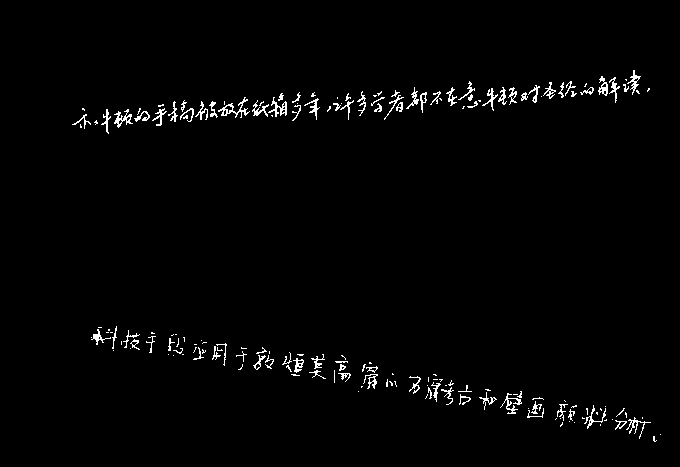 示,牛顿的手稿被放在纸箱多年,许多学者都不在意牛顿对圣经的解读,
科技手段应用于敦煌莫高窟的石窟考古和壁画颜料分析。